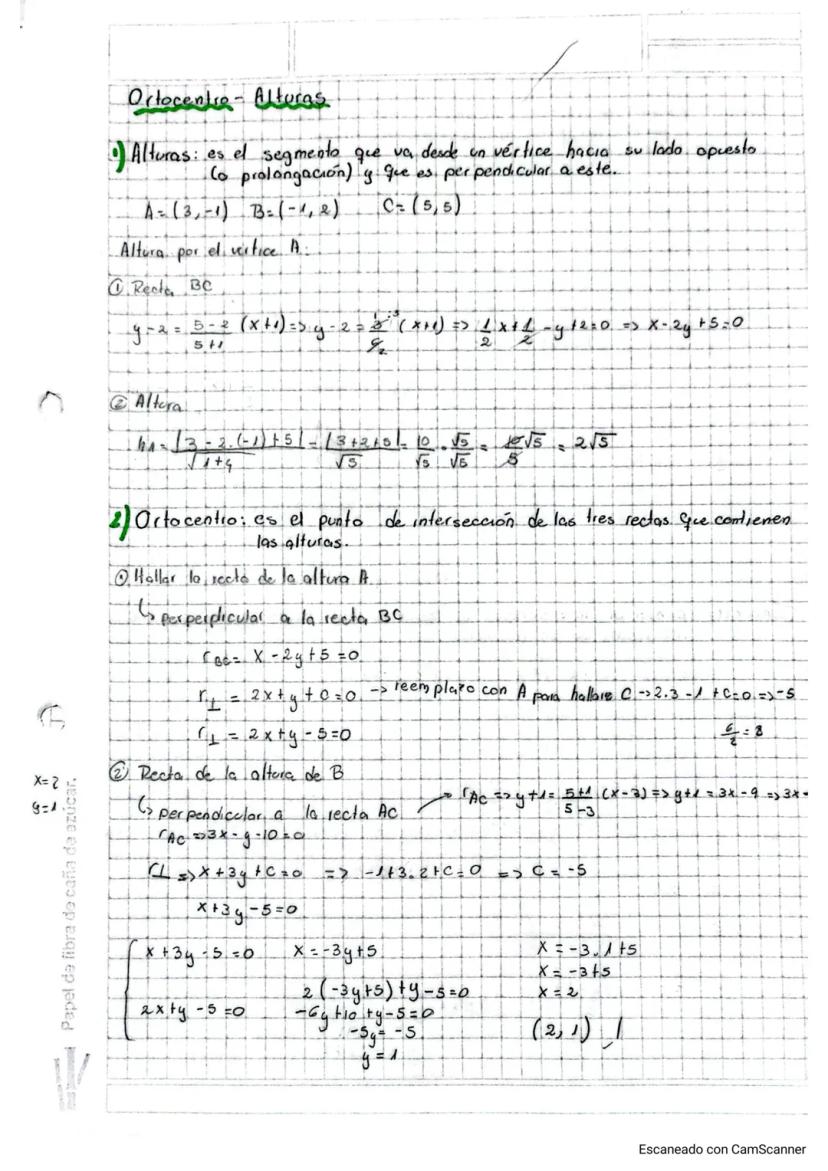 Ortocentro - Alturas
1) Alturas: es el segmento que va desde un vértice hacia su lado opuesto
(o prolongación) y que es perpendicular a este.
A=(3,-1) B=(-1,2) C=(5,5)
Altura por el vertice A:
① Recta BC
y-2 = 5-2/5+1 (x+1) => y-2 = 3/6 (x+1) => 1/2 x + 1/2 - y + 2 = 0 => x-2y+5=0
② Altura
hA = |3-2.(-1)+5|/√1+4 = |3+2+5|/√5 = 10/√5 . √5/√5 = 10√5/5 = 2√5
2) Ortocentro: es el punto de intersección de las tres rectas que contienen
las alturas.
① Hallar la recta de la altura A
↳ perperpdicular a la recta BC
rBC = x-2y+5=0
r⊥ = 2x+y+c=0 -> reemplazo con A para hallar C -> 2.3-1+C=0 => -5
r⊥ = 2x+y-5=0
6/2=3
② Recta de la altura de B
↳ perpendicular a la recta AC
rAC => y+1 = 5+1/5-3 (x-3) => y+1 = 3x-9 => 3x-
rAC => 3x-y-10=0
r⊥ => x+3y+C=0 => -1+3.2+C=0 => C=-5
x+3y-5=0
x=2
y=1
x+3y-5=0 x=-3y+5 x=-3.1+5
x=-3+5
2x+y-5=0 2(-3y+5)+y-5=0 x=2
-6y+10+y-5=0
-5y=-5 (2,1)
y=1
Papel de fibra de caña de azúcar.
Escaneado con CamScanner